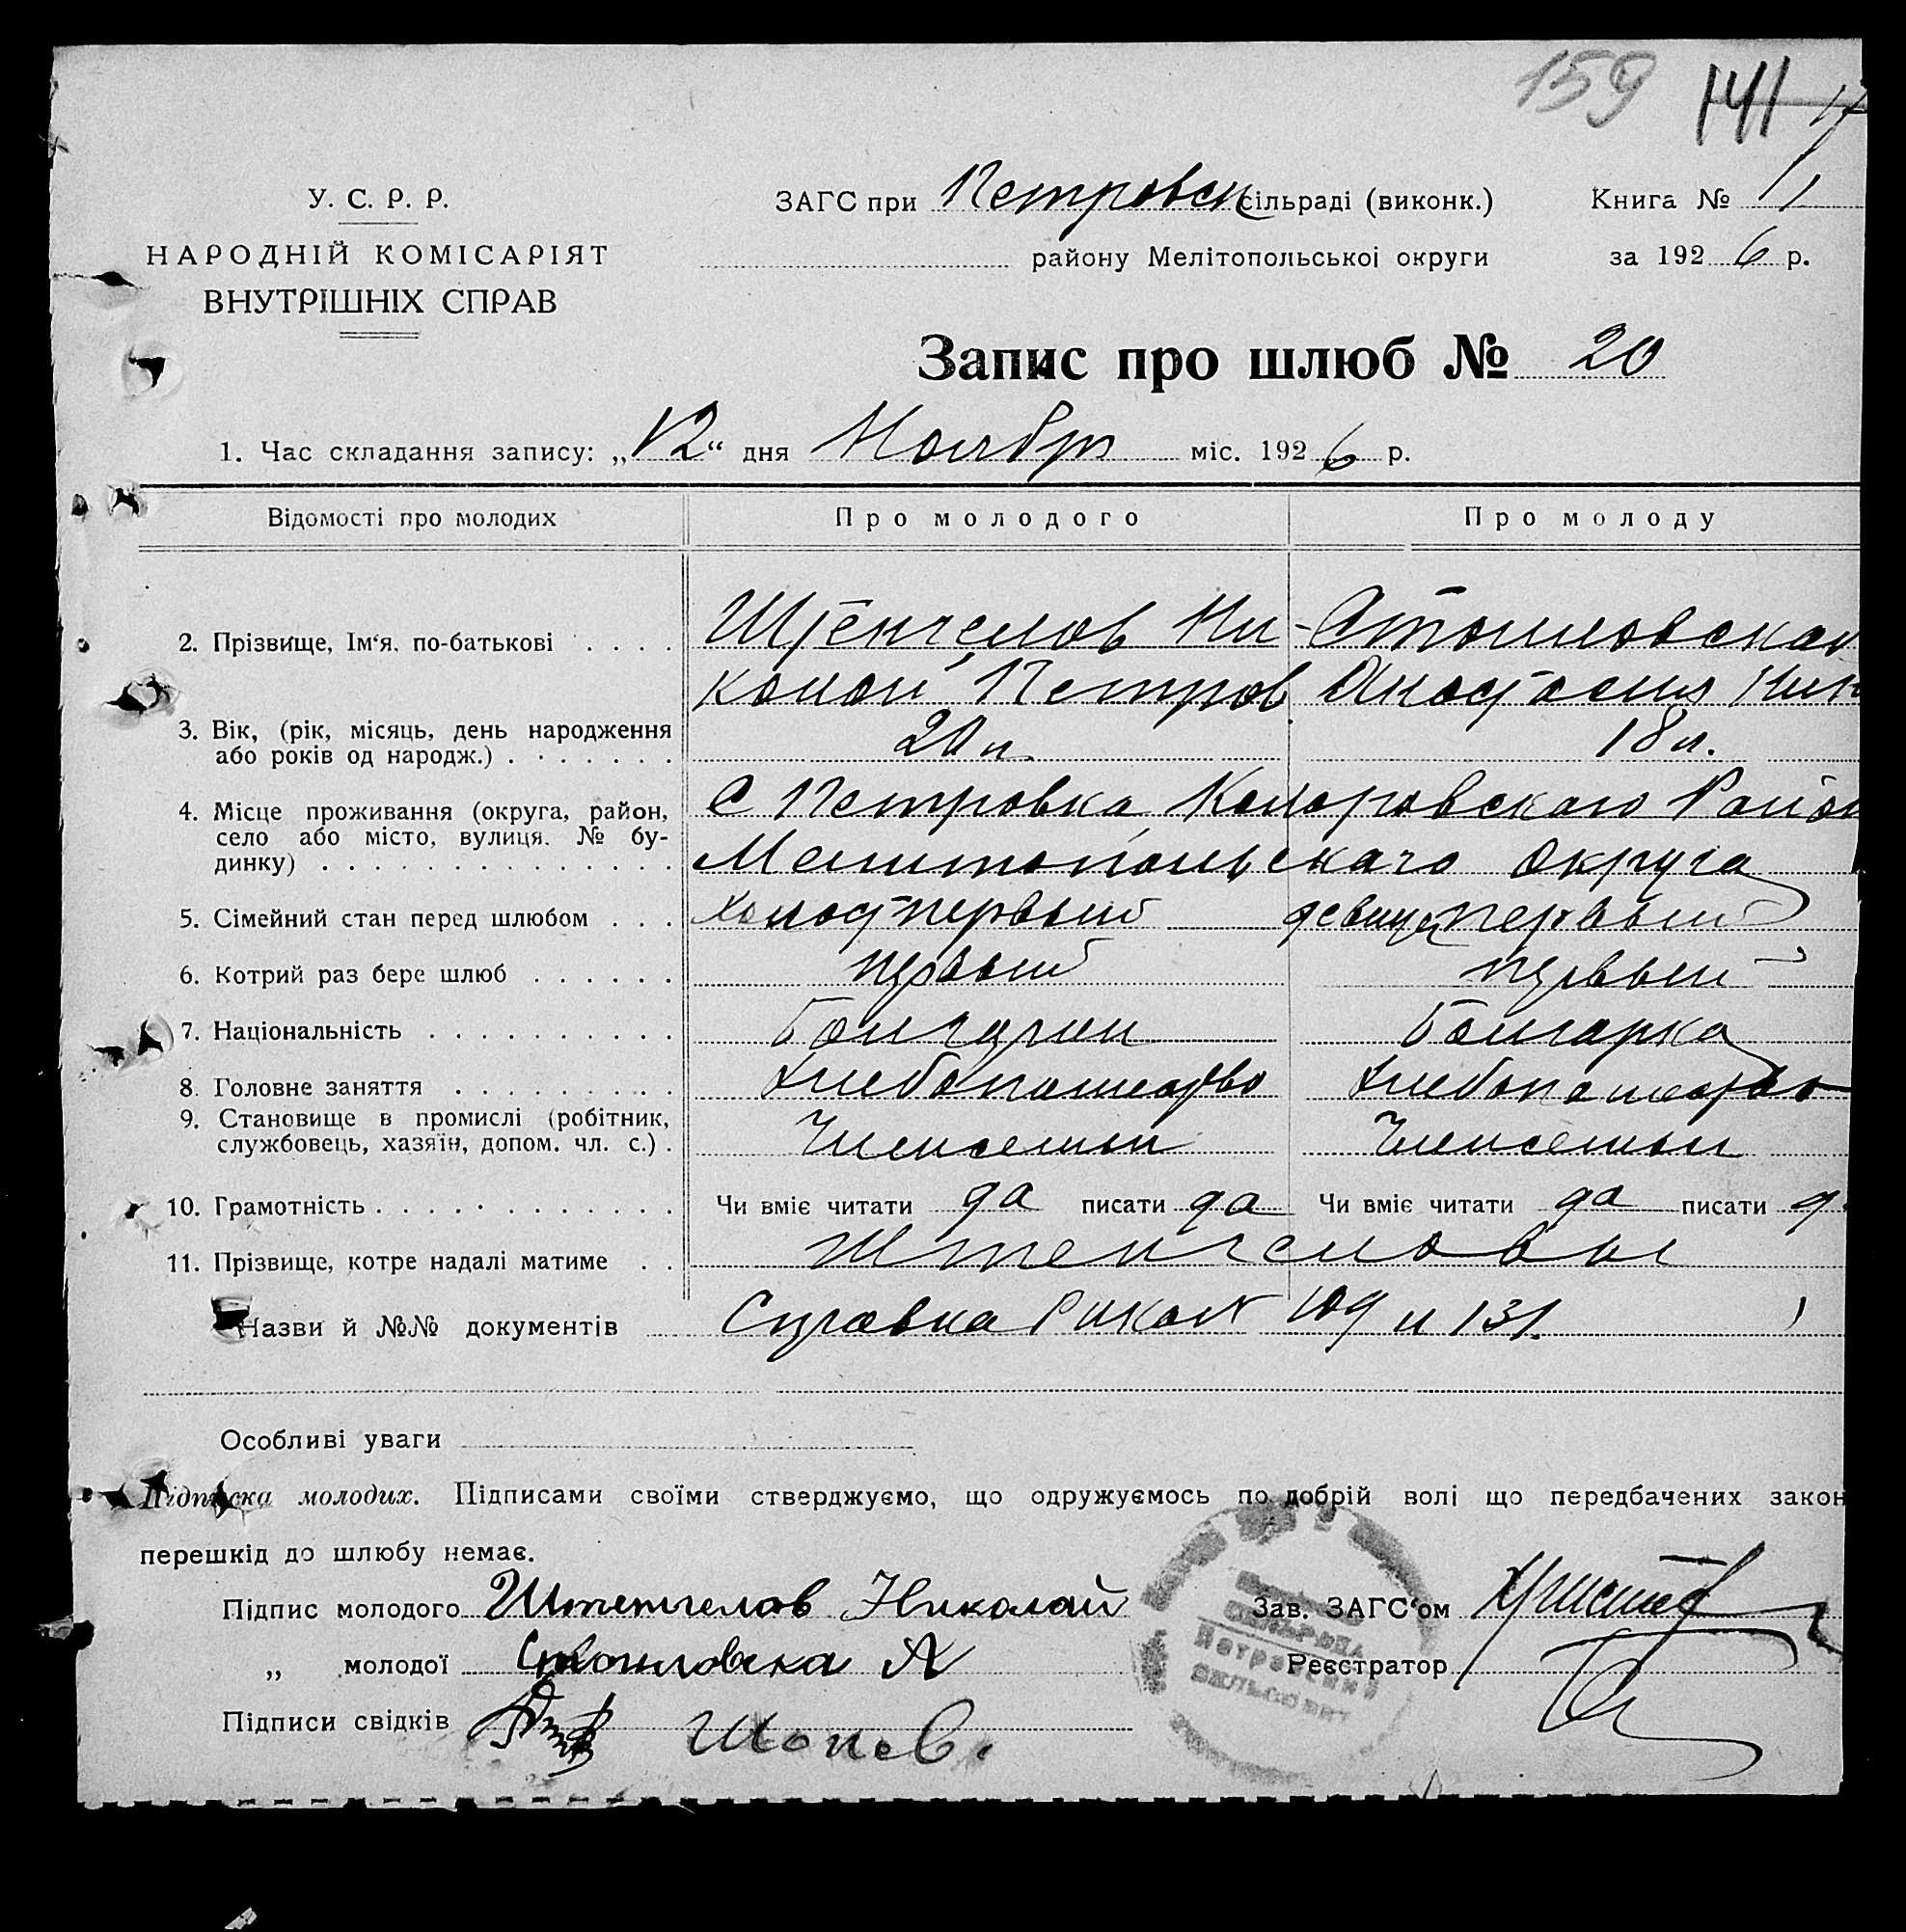 159 141
У. С. Р. Р.
НАРОДНІЙ КОМІСАРІЯТ
ВНУТРІШНІХ СПРАВ
ЗАГС при Петровск сільраді (виконк.)
району Мелітопольської округи
Книга № 1
за 1926 р.
Запис про шлюб № 20
1. Час складання запису: „12“ дня Ноября міс. 1926 р.
Відомості про молодих Про молодого Про молоду
2. Прізвище, Ім‘я. по-батькові . . . . Штенгелов Ни- Стоиловская
колай Петров Анастасия Ник
3. Вік, (рік, місяць, день народження
або років од народж.) . . . . . . . 20 л. 18 л.
4. Місце проживання (округа, район,
село або місто, вулиця. № бу-
динку) . . . . . . . . . . . . . .
С Петровка Коларовскаго Район
Мелитопольскаго округа
5. Сімейний стан перед шлюбом . . . холост первый девица первый
6. Котрий раз бере шлюб . . . . . . первый первый
7. Національність . . . . . . . . . . Болгарин Болгарка
8. Головне заняття . . . . . . . . . Хлебопашество Хлебопашество
9. Становище в промислі (робітник,
службовець, хазяїн, допом. чл. с.) . Член семьи Член семьи
10. Грамотність . . . . . . . . . . . . Чи вміє читати да писати да Чи вміє читати да писати д
11. Прізвище, котре надалі матиме . . Штенгеловы
Назви й №№ документів Справка 109 и 131.
Особливі уваги
Підписка молодих. Підписами своїми стверджуємо, що одружуємось по добрій волі що передбачених закон
перешкід до шлюбу немає.
Підпис молодого Штенгелов Николай
Зав. ЗАГС‘ом Христов
„ молодої Стоиловска А
Реєстратор
Підписи свідків Шопов.
Петровский